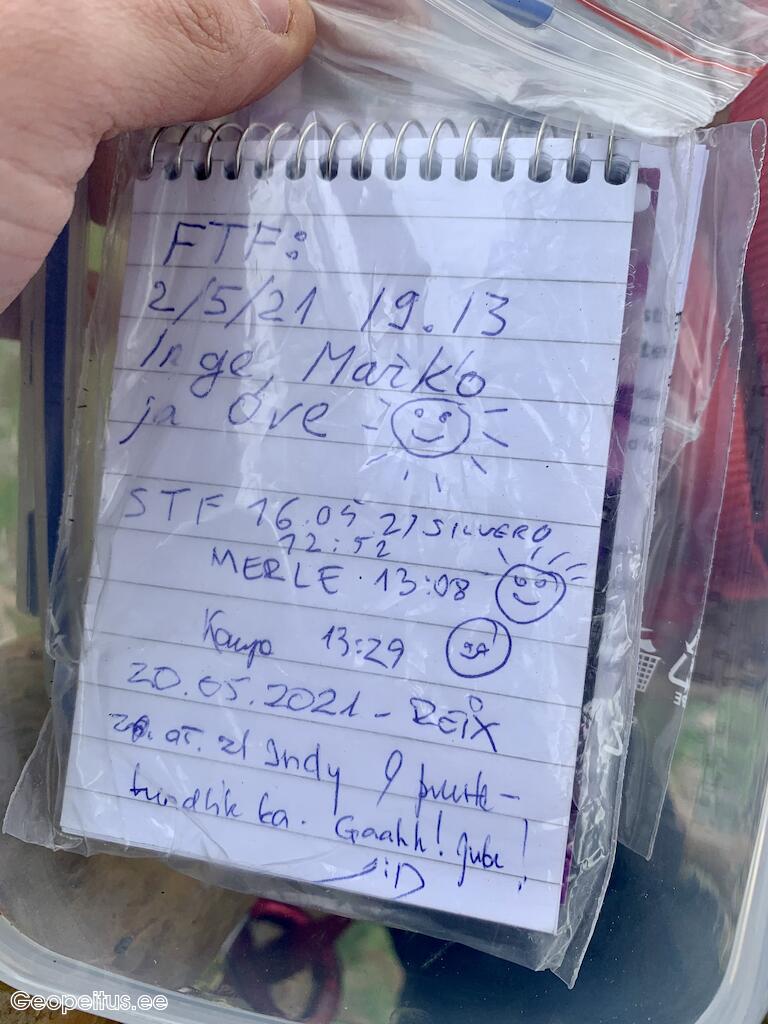 FTF:
2/5/21 19.13
Inge, Marko
ja Ove
STF 16.05 21 SILVERO
12:52
MERLE 13:08
13:29
20.05.2021 - REiX
05. 21 Indy
tundlik ka. Gaahh! Jube!
:D
Geopeitus.ee